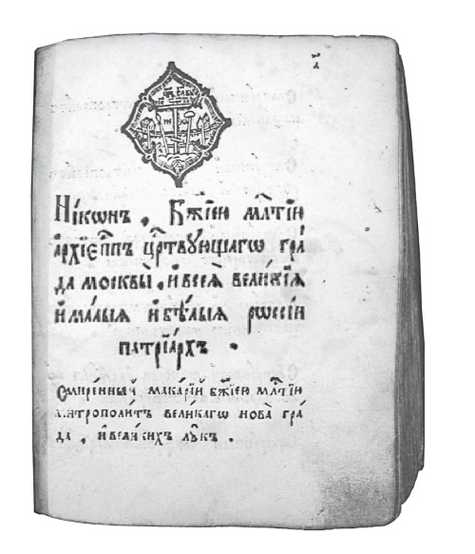 Нїкѡнъ , Бж҃їею мл҇тїю
а҆рхїепⷭ҇пъ цр҇твꙋющагѡ гра́
да москвы̀ , и҆ всеѧ̀ вели́кїѧ
и҆ ма́лыѧ и҆ бѣ́лыѧ рѡссі́и
патрїа́рхъ .
Смире́нный мака́рїй бж҃їею мл҇тїю
митрополи́тъ вели́кагѡ нова̀ гра́
да , и҆ вели́кихъ лꙋ́къ .